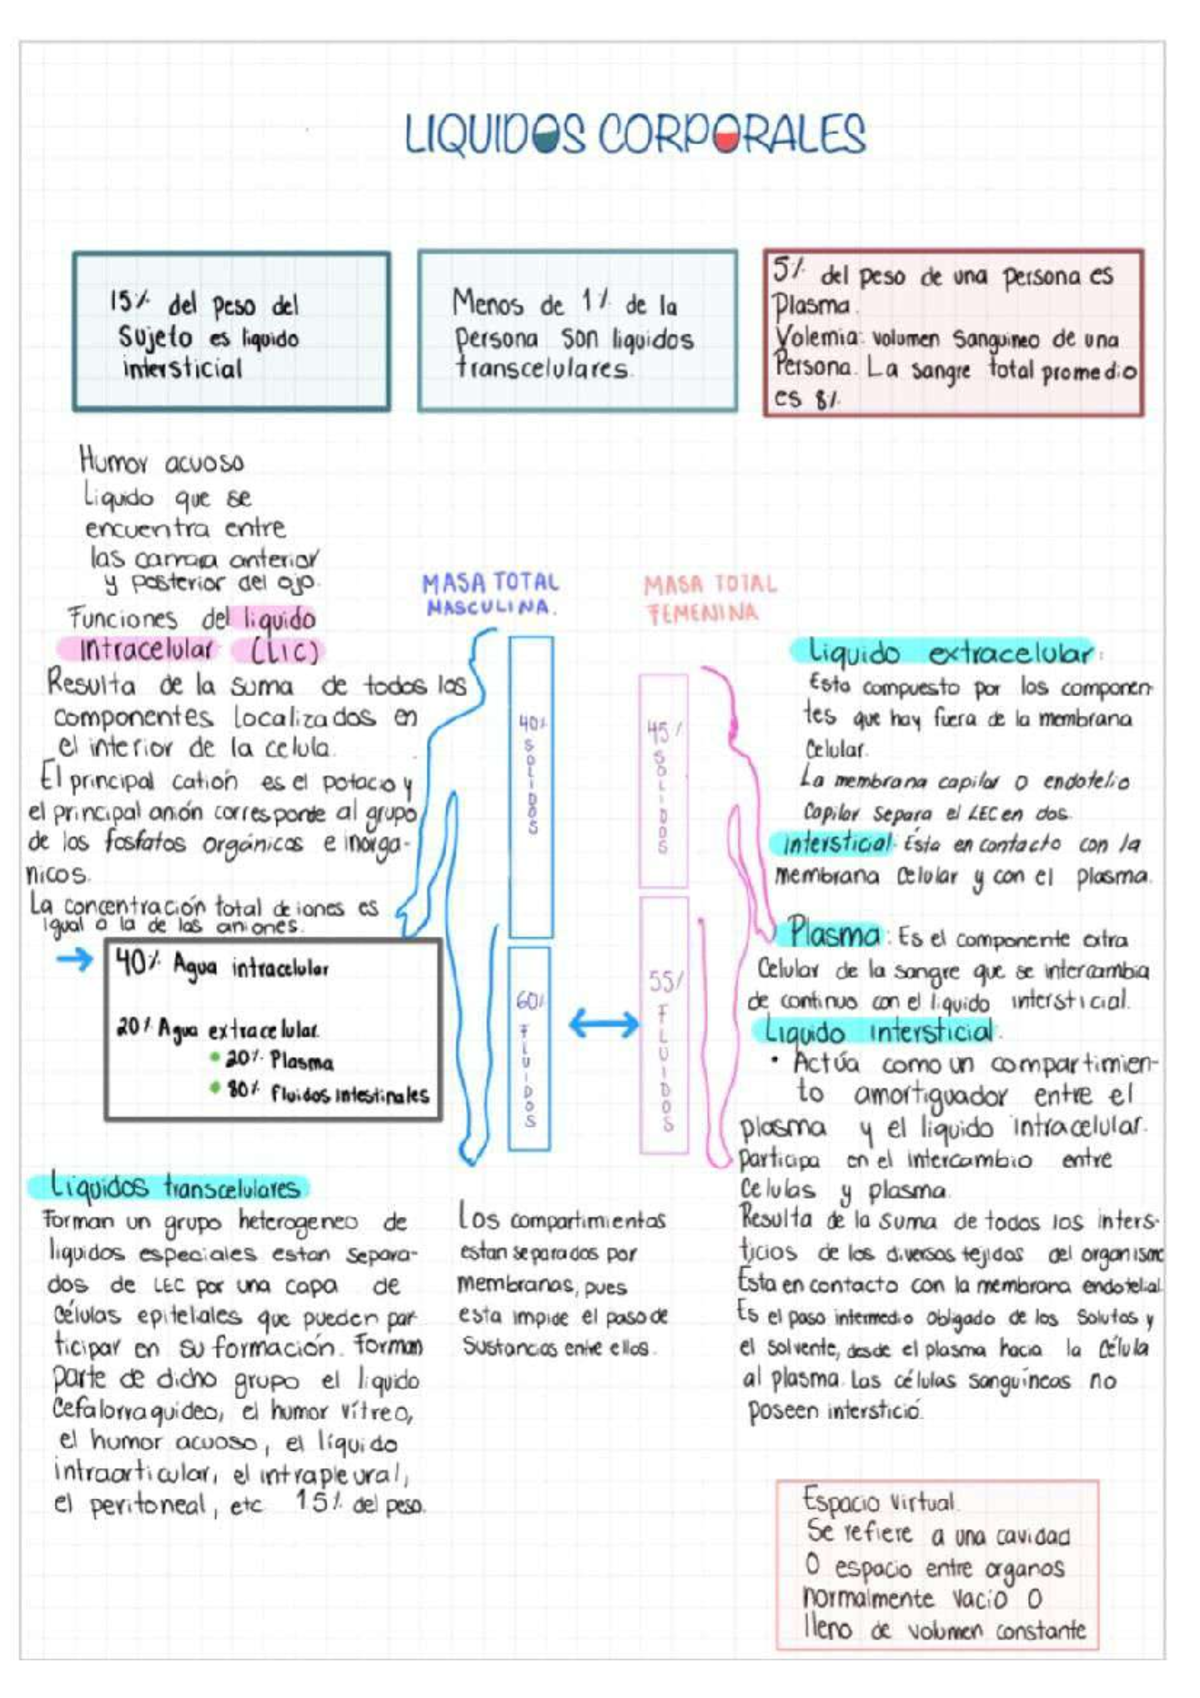 LIQUIDOS CORPORALES
15% del peso del
Sujeto es liquido
intersticial
Menos de 1% de la
Persona son liquidos
transcelulares.
5% del peso de una persona es
Plasma.
Volemia: volumen Sanguineo de una
Persona. La sangre total promedio
es 8%
Humor acuoso
Liquido que se
encuentra entre
las camara anterior
y posterior del ojo.
Funciones del liquido
intracelular (LIC)
Resulta de la suma de todos los
componentes localizados en
el interior de la celula.
El principal catión es el potacio y
el principal anión corresponde al grupo
de los fosfatos orgánicos e inorga-
nicos.
La concentración total de iones es
igual a la de los aniones.
40% Agua intracelular
20% Agua extracelular
20% Plasma
80% Fluidos intestinales
MASA TOTAL
MASCULINA.
40%
SOLIDOS
60%
FLUIDOS
MASA TOTAL
FEMENINA
45%
SOLIDOS
55%
FLUIDOS
Liquido extracelular:
Esta compuesto por los componen
tes que hay fuera de la membrana
Celular.
La membrana capilar o endotelio
Capilar separa el LEC en dos.
intersticial: Esta en contacto con la
membrana Celular y con el plasma.
Plasma: Es el componente extra
Celular de la sangre que se intercambia
de continuo con el liquido intersticial.
Liquido intersticial.
• Actúa como un compartimien-
to amortiguador entre el
plasma y el liquido intracelular.
participa en el intercambio entre
Celulas y plasma.
Resulta de la suma de todos los inters-
ticios de los diversos tejidos del organismo
Esta en contacto con la membrana endotelial.
Es el paso intermedio obligado de los Solutos y
el solvente, desde el plasma hacia la Célula
al plasma. Las células sanguíneas no
poseen intersticio.
Liquidos transcelulares
Forman un grupo heterogeneo de
liquidos especiales estan separa-
dos de LEC por una capa de
células epitelales que pueden par
ticipar en su formación. Forman
parte de dicho grupo el liquido
Cefalorraquideo, el humor vítreo,
el humor acuoso, el líquido
intraarticular, el intrapleural,
el peritoneal, etc 15% del peso.
Los compartimientos
estan separados por
membranas, pues
esta impide el paso de
Sustancias entre ellos.
Espacio virtual.
Se refiere a una cavidad
O espacio entre organos
normalmente vacio o
lleno de volumen constante